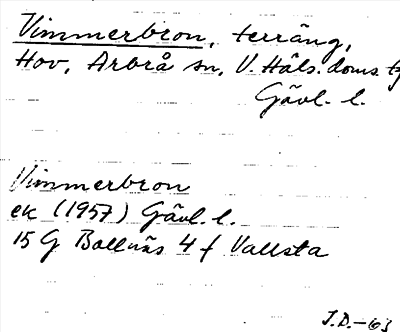 Vimmerbron, terräng,
Hov, Arbrå sn, V. Häls. doms. tg
Gävl. l.
Vimmerbron
ek (1957) Gävl. l.
15 G Bollnäs 4 f Vallsta
J.D.-63